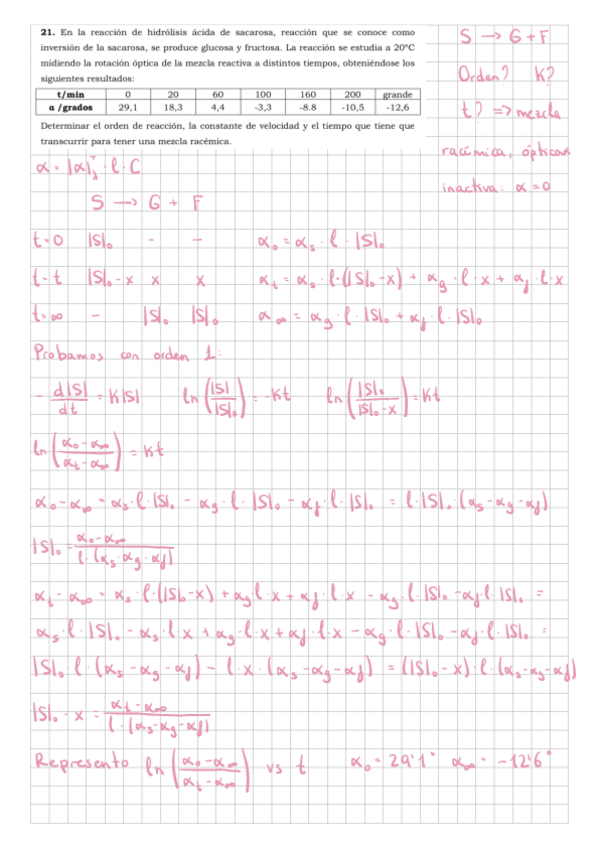 21. En la reacción de hidrólisis ácida de sacarosa, reacción que se conoce como
inversión de la sacarosa, se produce glucosa y fructosa. La reacción se estudia a 20ºC
midiendo la rotación óptica de la mezcla reactiva a distintos tiempos, obteniéndose los
siguientes resultados:
t/min 0 20 60 100 160 200 grande
α /grados 29,1 18,3 4,4 -3,3 -8.8 -10,5 -12,6
Determinar el orden de reacción, la constante de velocidad y el tiempo que tiene que
transcurrir para tener una mezcla racémica.
S → G + F
Orden? K?
t? => mezcla
racémica, ópticam
inactiva: α = 0
α = |α|ᵀλ · l · C
S → G + F
t=0 |S|₀ - - α₀ = αs · l · |S|₀
t=t |S|₀-x x x αt = αs · l · (|S|₀-x) + αg · l · x + αf · l · x
t=∞ - |S|₀ |S|₀ α∞ = αg · l · |S|₀ + αf · l · |S|₀
Probamos con orden 1:
- d|S|/dt = K|S| ln(|S|/|S|₀) = -Kt ln(|S|₀/|S|₀-x) = Kt
ln(α₀-α∞/αt-α∞) = Kt
α₀-α∞ = αs·l·|S|₀ - αg·l·|S|₀ - αf·l·|S|₀ = l·|S|₀·(αs-αg-αf)
|S|₀ = α₀-α∞/l·(αs-αg-αf)
αt-α∞ = αs·l·(|S|₀-x) + αg·l·x + αf·l·x - αg·l·|S|₀ - αf·l·|S|₀ =
αs·l·|S|₀ - αs·l·x + αg·l·x + αf·l·x - αg·l·|S|₀ - αf·l·|S|₀ =
|S|₀·l·(αs-αg-αf) - l·x·(αs-αg-αf) = (|S|₀-x)·l·(αs-αg-αf)
|S|₀-x = αt-α∞/l·(αs-αg-αf)
Represento ln(α₀-α∞/αt-α∞) vs t α₀ = 29'1° α∞ = -12'6°